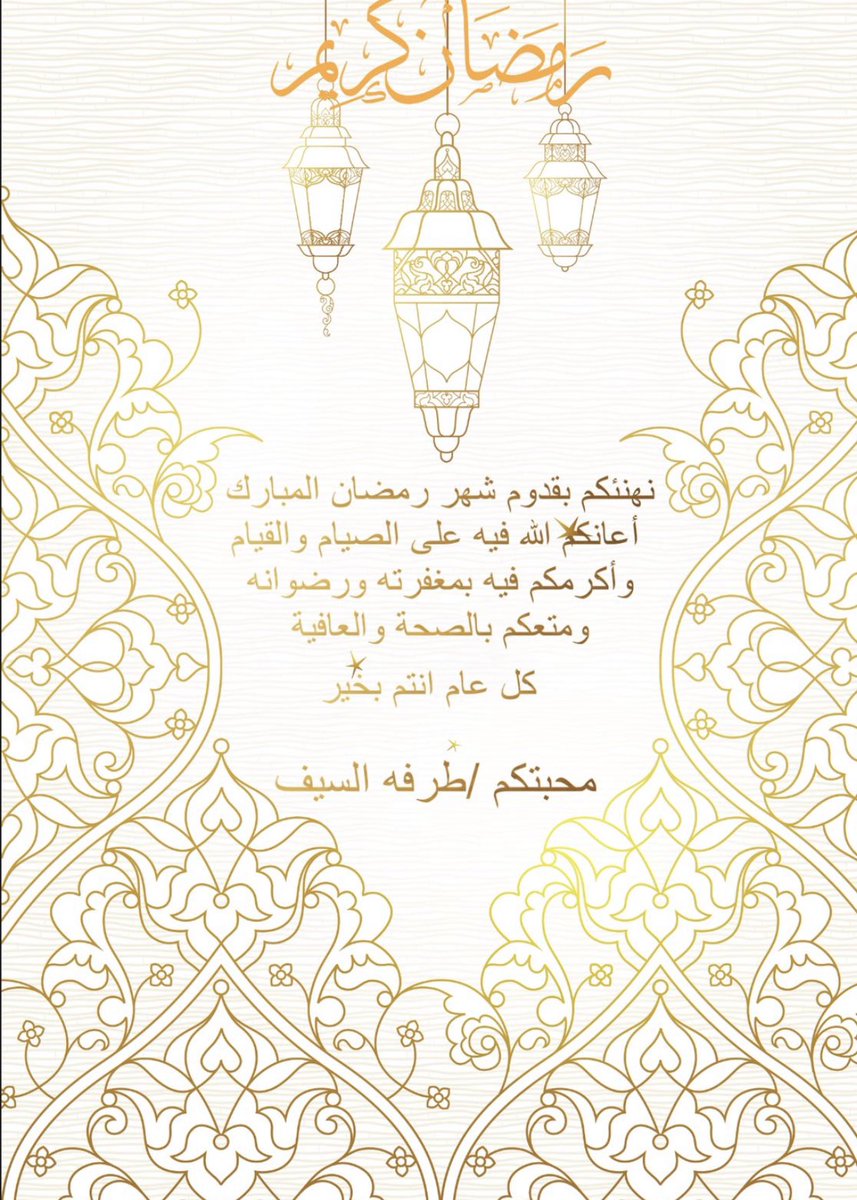 رمضان كريم
نهنئكم بقدوم شهر رمضان المبارك
أعانكم الله فيه على الصيام والقيام
وأكرمكم فيه بمغفرته ورضوانه
ومتعكم بالصحة والعافية
كل عام انتم بخير
محبتكم /طرفه السيف